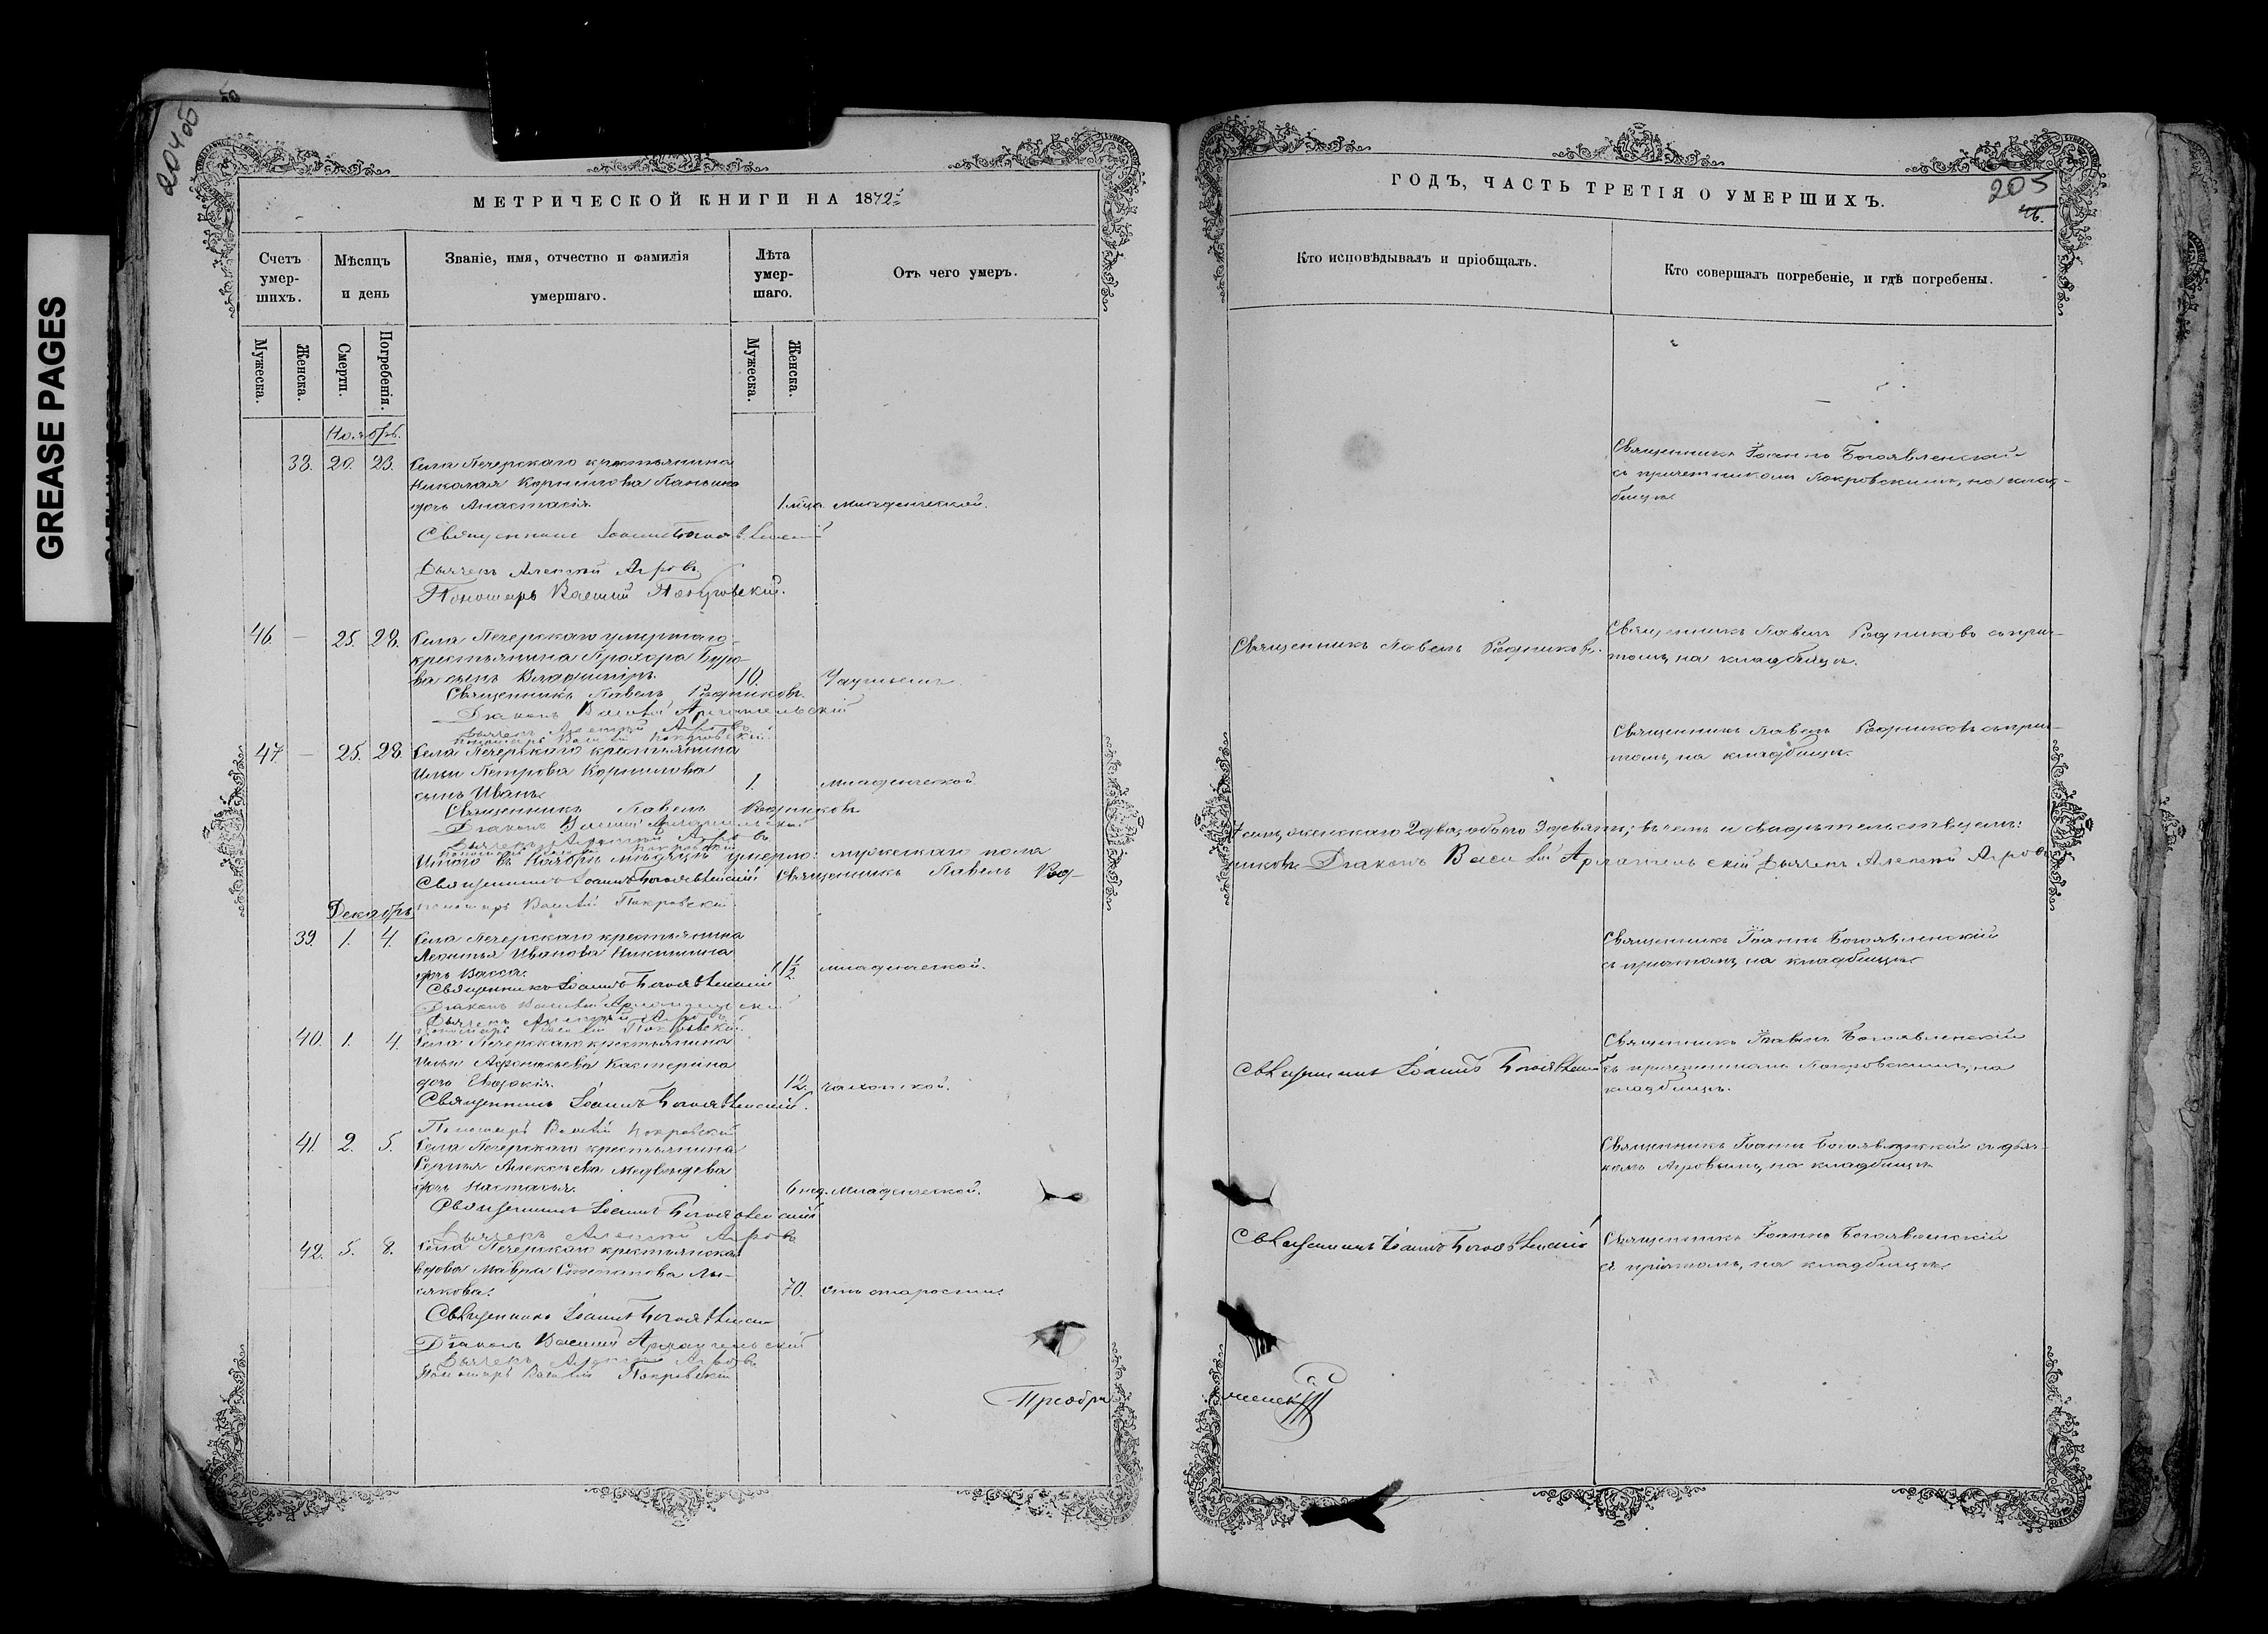 GREASE PAGES
204об
МЕТРИЧЕСКОЙ КНИГИ НА 1872й
Счетъ умершихъ.
Мѣсяцъ и день
Званіе, имя, отчество и фамилія
умершаго.
Лѣта умершаго.
Отъ чего умеръ.
Мужеска.
Женска.
Смерти.
Погребенія.
Мужеска.
Женска.
Ноябрь.
38. 20. 23. Села Печерскаго крестьянина
Николая Корнилова Панькина
дочь Анастасія. 1 мца. младенческой.
Священникъ Іоаннъ Богоявленскій
Дьячекъ Алексѣй Агровъ
Пономарь Василій Покровскій.
46. — 25. 28. Села Печерскаго умершаго
крестьянина Прохора Буро-
ва сынъ Владиміръ. 10.
Священникъ Павелъ Родниковъ
Діаконъ Василій Архангельскій
Дьячекъ Алексѣй Агровъ
Пономарь Василій Покровскій
47. — 25. 28. Села Печерскаго крестьянина
Ильи Петрова Корнилова
сынъ Иванъ. 1. младенческой
Священникъ Павелъ Родниковъ
Діаконъ Василій Архангельскій
Дьячекъ Алексѣй Агровъ
Пономарь Василій Покровскій
Итого въ Ноябрѣ мѣсяцѣ умерло: мужескаго пола
Священникъ Іоаннъ Богоявленскій Священникъ Павелъ Род-
Декабрь. пономарь Василій Покровскій
39. 1. 4. Села Печерскаго крестьянина
Леонтья Иванова Никишина
дочь Васса. 1 1/2 младенческой.
Священникъ Іоаннъ Богоявленскій
Діаконъ Василій Архангельскій
Дьячекъ Алексѣй Агровъ
Пономарь Василій Покровскій.
40. 1. 4. Села Печерскаго крестьянина
Ильи Афонасьева Кастерина
дочь Евдокія. 12. чахоткой.
Священникъ Іоаннъ Богоявленскій.
Пономарь Василій Покровскій
41. 2. 5. Села Печерскаго крестьянина
Сергѣя Алексѣева Медвѣдева
дочь Настасья. 6 нед. младенческой.
Священникъ Іоаннъ Богоявленскій
Дьячекъ Алексѣй Агровъ
42. 5. 8. Села Печерскаго крестьянская
вдова Мавра Степанова Лы-
сякова. 70. отъ старости.
Священникъ Іоаннъ Богоявленскій
Діаконъ Василій Архангельскій
Дьячекъ Алексѣй Агровъ
Пономарь Василій Покровскій
Преобра
ГОДЪ, ЧАСТЬ ТРЕТІЯ О УМЕРШИХЪ.
205
Кто исповѣдывалъ и пріобщалъ.
Кто совершалъ погребеніе, и гдѣ погребены.
Священникъ Іоаннъ Богоявленскій
съ причетникомъ Покровскимъ, на клад-
бищѣ.
Священникъ Павелъ Родниковъ.
Священникъ Павелъ Родниковъ съ прич-
томъ, на кладбищѣ.
Священникъ Павелъ Родниковъ съ прич-
томъ, на кладбищѣ.
7 семь, женскаго 2 два, обоего 9 девять; въ чемъ и свидѣтельствуемъ:
никовъ Діаконъ Василій Архангельскій Дьячекъ Алексѣй Агровъ
Священникъ Іоаннъ Богоявленскій
съ причтомъ, на кладбищѣ.
Священникъ Іоаннъ Богоявленскій
Священникъ Іоаннъ Богоявленскій
съ причетникомъ Покровскимъ, на
кладбищѣ.
Священникъ Іоаннъ Богоявленскій съ дьяч-
комъ Агровымъ, на кладбищѣ.
Священникъ Іоаннъ Богоявленскій
Священникъ Іоаннъ Богоявленскій
съ причтомъ, на кладбищѣ.